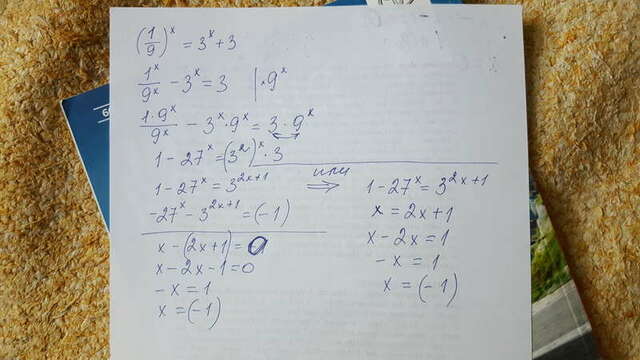 (1/9)^x = 3^x + 3
1^x/9^x - 3^x = 3 | · 9^x
1·9^x/9^x - 3^x · 9^x = 3 · 9^x
1 - 27^x = (3^2)^x · 3
1 - 27^x = 3^{2x+1}
-27^x - 3^{2x+1} = (-1)
x - (2x+1) = 0
x - 2x - 1 = 0
-x = 1
x = (-1)
или
⇒
1 - 27^x = 3^{2x+1}
x = 2x + 1
x - 2x = 1
-x = 1
x = (-1)